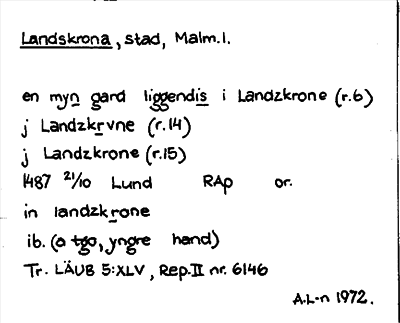 Landskrona, stad, Malm.l.
en myn gard liggendis i Landzkrone (r.6)
j Landzkrvne (r.14)
j Landzkrone (r.15)
1487 21/10 Lund RAp or.
in landzkrone
ib. (a tgo, yngre hand)
Tr. LÄUB 5:XLV, Rep.II nr. 6146
A.L-n 1972.